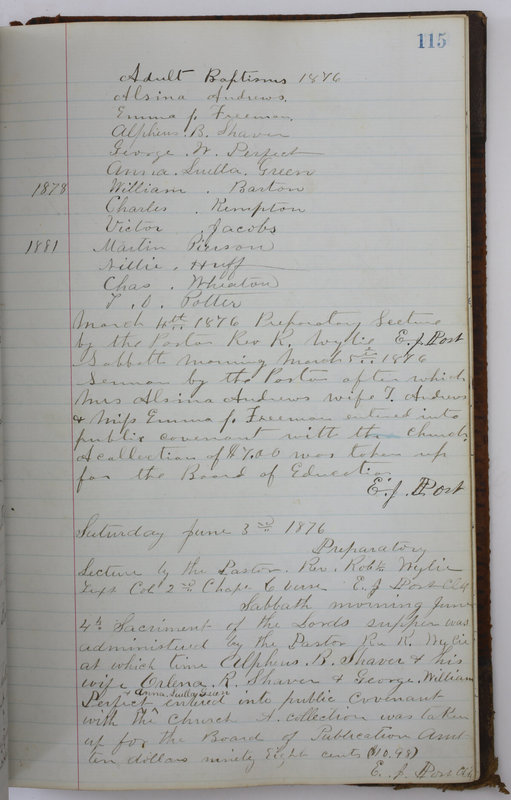 115
Adult Baptisms 1876
Alsina Andrews.
Emma J. Freeman.
Alpheus. B. Shaver
George. W. Perfect
Anna. Luella. Green
1878 William . Barton
Charles . Kempton
Victor . Jacobs
1881 Martin Pierson
Nillie . Huff
Chas . Wheaton
T . O . Potter
March 4th 1876 Preparatory Lecture
by the Pastor Rev R. Wylie E. J. Post
Sabbath morning March 5th 1876
Sermon by the Pastor after which
Mrs Alsina Andrews wife T. Andrews
& Miss Emma J. Freeman entered into
public covenant with the Church
A collection of $7.00 was taken up
for the Board of Education
E. J. Post
Saturday June 3rd 1876
Preparatory
Lecture by the Pastor. Rev. Robt Wylie
Text Col 2nd Chapt 6 verse E. J Post Clk
Sabbath morning June
4th Sacriment of the Lords supper was
administered by the Pastor Rev R. Wylie
at which time Alpheus. B. Shaver & his
wife Orlena. R. Shaver & George. William
& Anna. Luella Green
Perfect entered into public Covenant
with the Church A. collection was taken
up for the Board of Publication Amt
ten dollars ninety Eight cents (10.98)
E. J. Post Clk